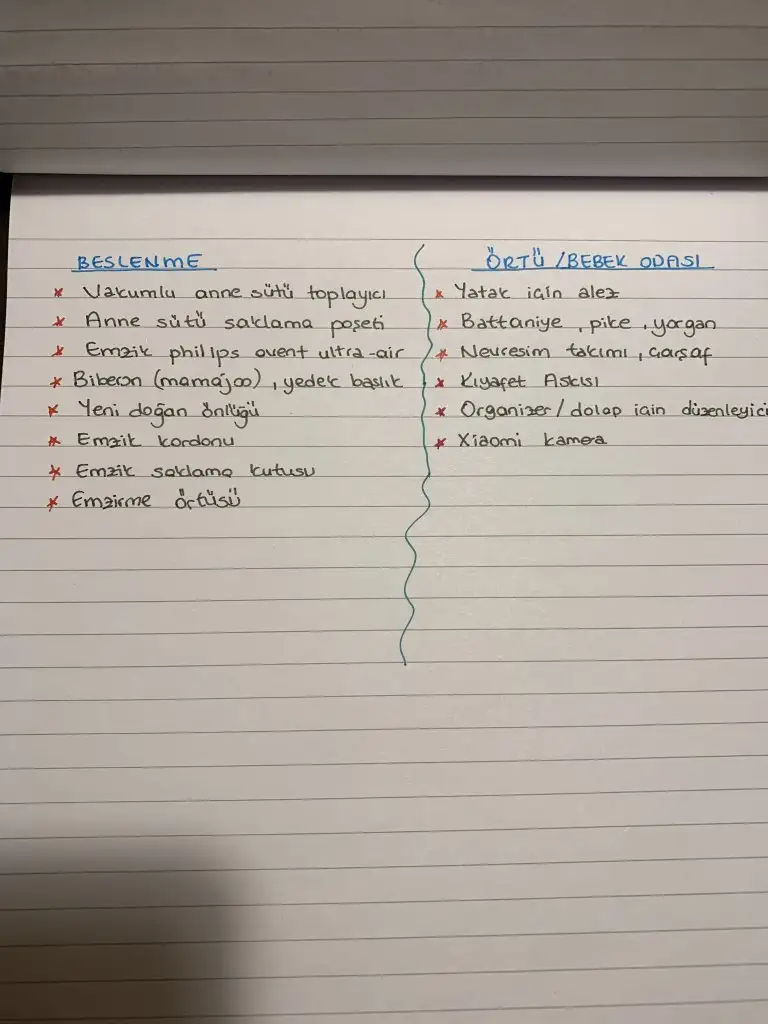 BESLENME
* Vakumlu anne sütü toplayıcı
* Anne sütü saklama poşeti
* Emzik philips avent ultra-air
* Biberon (mamajoo), yedek başlık
* Yeni doğan önlüğü
* Emzik kordonu
* Emzik saklama kutusu
* Emzirme örtüsü
ÖRTÜ /BEBEK ODASI
* Yatak için alez
* Battaniye, pike, yorgan
* Nevresim takımı, çarşaf
* Kıyafet Askısı
* Organizer/ dolap için düzenleyici
* Xiaomi kamera